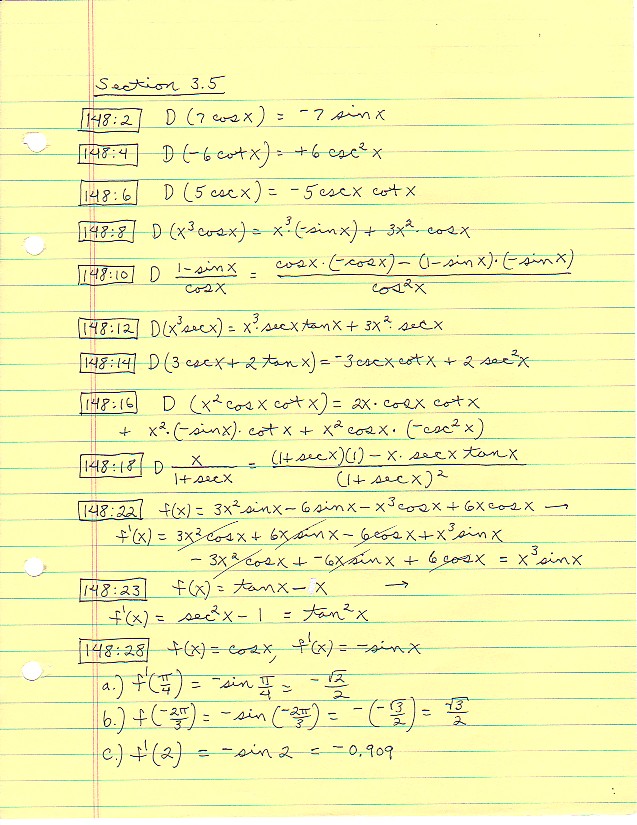 Section 3.5
148:2 D (7 cosx) = -7 sinx
148:4 D (-6 cotx) = +6 csc²x
148:6 D (5 cscx) = -5 cscx cotx
148:8 D (x³cosx) = x³·(-sinx) + 3x²·cosx
148:10 D (1-sinx)/cosx = (cosx·(-cosx) - (1-sinx)·(-sinx))/cos²x
148:12 D(x³secx) = x³·secxtanx + 3x²·secx
148:14 D (3 cscx + 2 tanx) = -3cscxcotx + 2 sec²x
148:16 D (x² cosx cotx) = 2x·cosx cotx
+ x²·(-sinx)·cotx + x²cosx·(-csc²x)
148:18 D x/(1+secx) = ((1+secx)(1) - x·secxtanx)/(1+secx)²
148:22 f(x) = 3x²sinx - 6sinx - x³cosx + 6xcosx →
f'(x) = 3x²cosx + 6xsinx - 6cosx + x³sinx
- 3x²cosx + -6xsinx + 6cosx = x³sinx
148:23 f(x) = tanx - x →
f'(x) = sec²x - 1 = tan²x
148:28 f(x) = cosx, f'(x) = -sinx
a.) f'(π/4) = -sin π/4 = -√2/2
b.) f(-2π/3) = -sin(-2π/3) = -(-√3/2) = √3/2
c.) f'(2) = -sin2 = -0.909